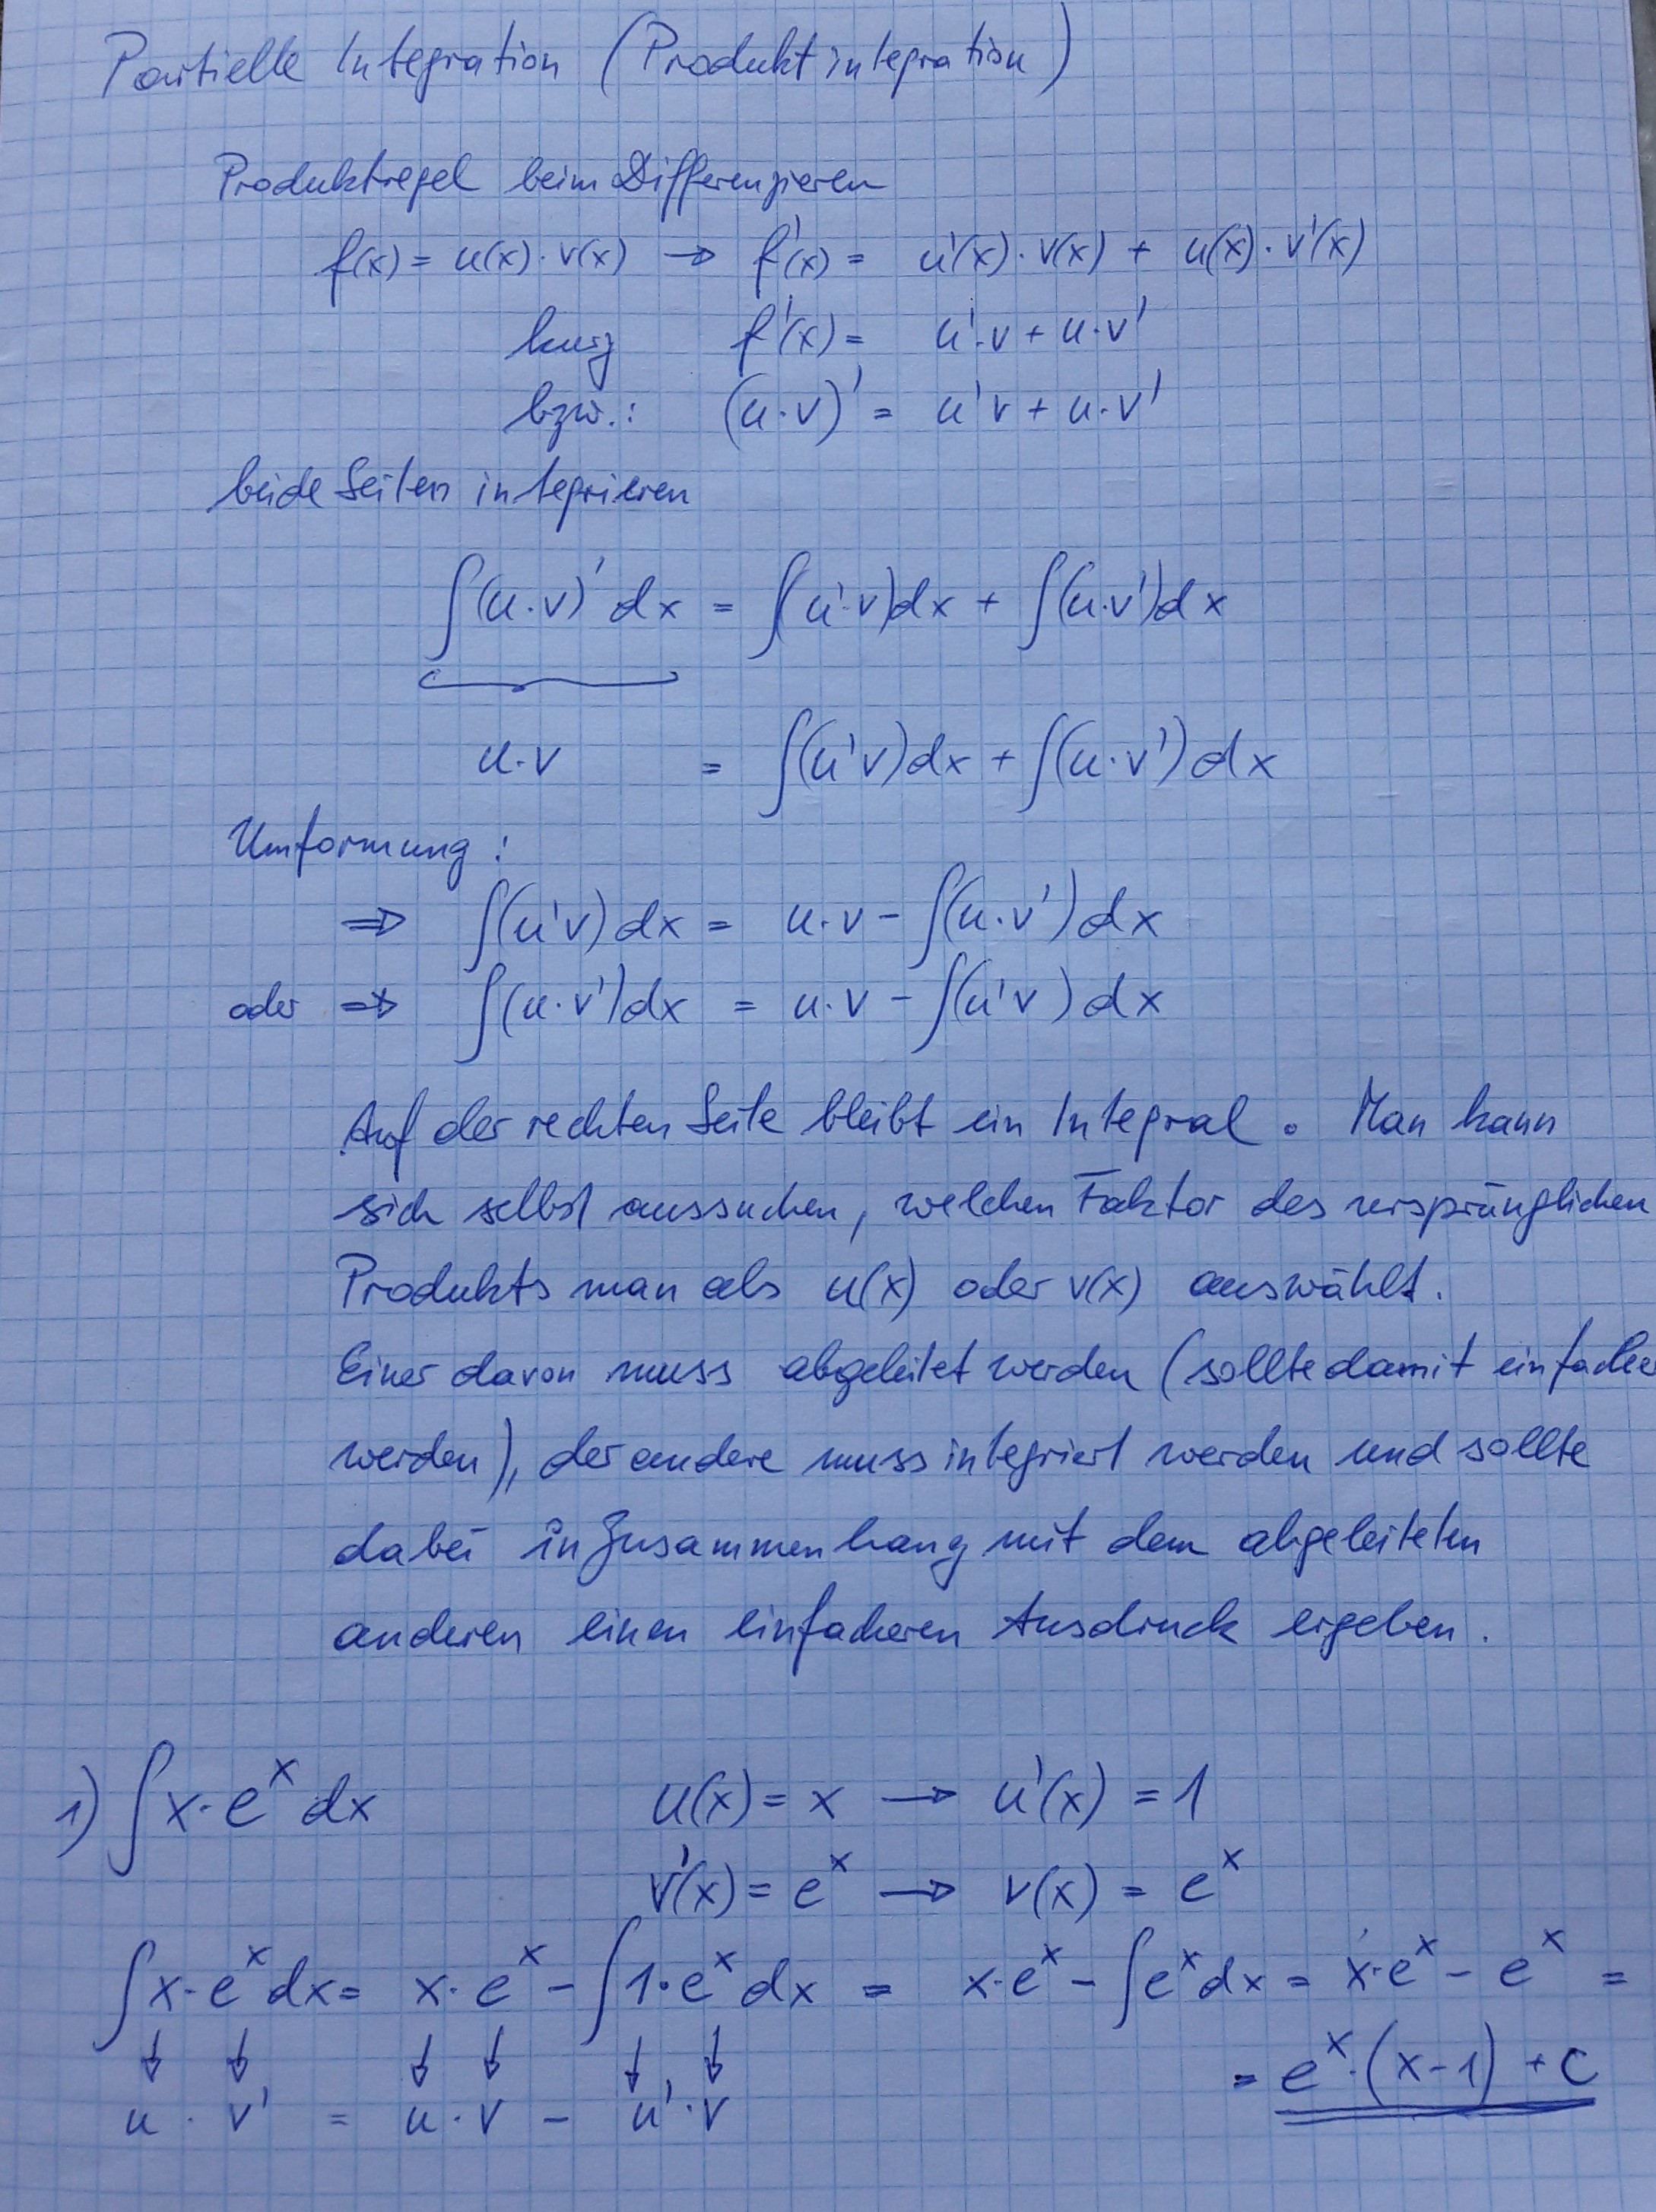 Partielle Integration (Produktintegration)
Produktregel beim Differenzieren
f(x) = u(x) · v(x) → f'(x) = u'(x) · v(x) + u(x) · v'(x)
kurz f'(x) = u'·v + u·v'
bzw.: (u·v)' = u'v + u·v'
beide Seiten integrieren
∫(u·v)' dx = ∫(u'·v)dx + ∫(u·v')dx
u·v = ∫(u'v)dx + ∫(u·v')dx
Umformung:
⇒ ∫(u'v)dx = u·v - ∫(u·v')dx
oder ⇒ ∫(u·v')dx = u·v - ∫(u'v)dx
Auf der rechten Seite bleibt ein Integral. Man kann
sich selbst aussuchen, welchen Faktor des ursprünglichen
Produkts man als u(x) oder v(x) auswählt.
Einer davon muss abgeleitet werden (sollte damit einfacher
werden), der andere muss integriert werden und sollte
dabei in Zusammenhang mit dem abgeleiteten
anderen einen einfacheren Ausdruck ergeben.
1) ∫x·eˣ dx u(x) = x → u'(x) = 1
v'(x) = eˣ → v(x) = eˣ
∫x·eˣdx = x·eˣ - ∫1·eˣdx = x·eˣ - ∫eˣdx = x·eˣ - eˣ =
↓ ↓ ↓ ↓ ↓ ↓ = eˣ·(x-1) + C
u · v' = u·v - u'·v